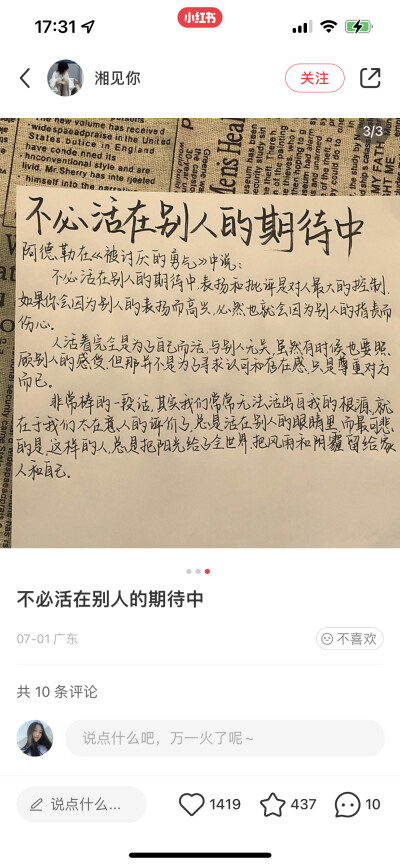 17:31
小红书
湘见你
关注
3/3
new volume has received
widespaeadpraise in the United
States butice in England
have condemined its
hnconventional style and are
livid. Mr.Sherry has inte rjeeted
himself into the narrative
Mens Heal
不必活在别人的期待中
阿德勒在《被讨厌的勇气》中说:
不必活在别人的期待中表扬和批评是对人最大的控制.
如果你会因为别人的表扬而高兴,必然也就会因为别人的指责而
伤心.
人活着完全是为了自己而活,与别人无关,虽然有时候也要照
顾别人的感受,但那并不是为了寻求认可和存在感,只是尊重对方
而已.
非常棒的一段话,其实我们常常无法活出自我的根源,就
在于我们太在意人的评价了,总是活在别人的眼睛里,而最可悲
的是,这样的人,总是把阳光给了全世界,把风雨和阴霾留给家
人和自己.
不必活在别人的期待中
07-01 广东
不喜欢
共 10 条评论
说点什么吧，万一火了呢～
说点什么...
1419
437
10